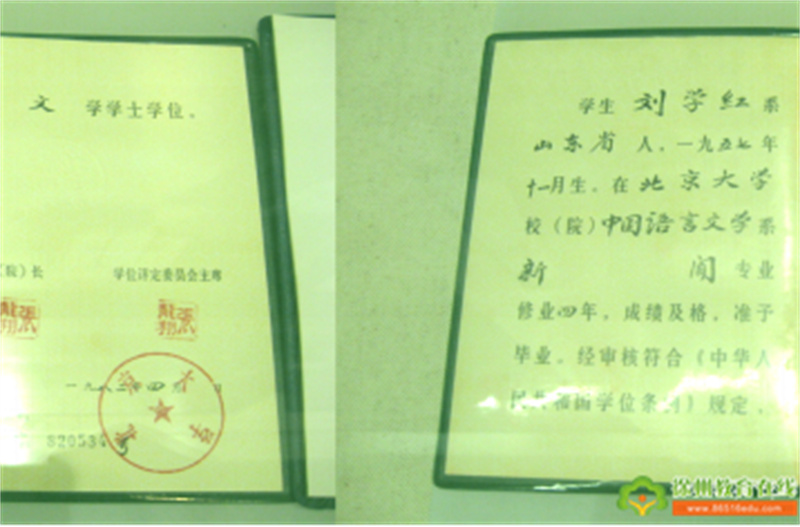 文 学学士学位。
(院)长 学位评定委员会主席
张龙翔
一九八二年四月 日
820534
学生 刘学红 系
山东省 人,一九五七年
十一月生。在 北京大学
校(院)中国语言文学系
新 闻 专业
修业四年,成绩及格,准予
毕业。经审核符合《中华人
民共和国学位条例》规定,
徐州教育在线
www.86516edu.com